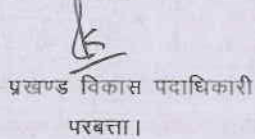 प्रखण्ड विकास पदाधिकारी
परबत्ता।